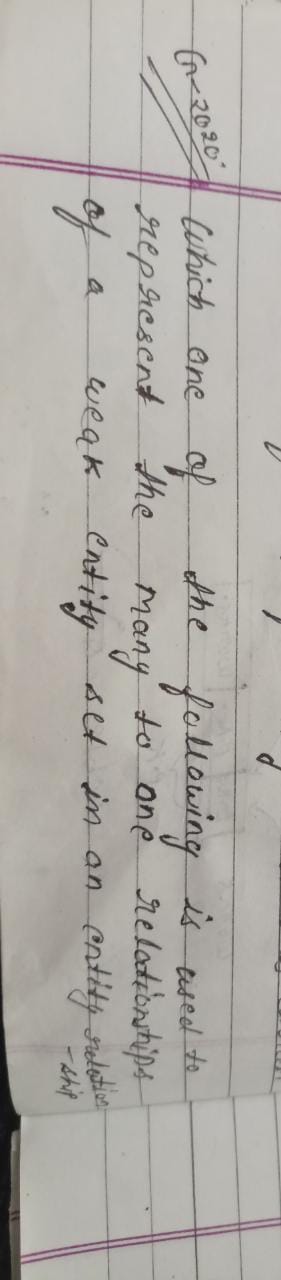 G-2020
Which one of the following is used to
represent the many to one relationships
of a weak entity set in an entity relation
-ship